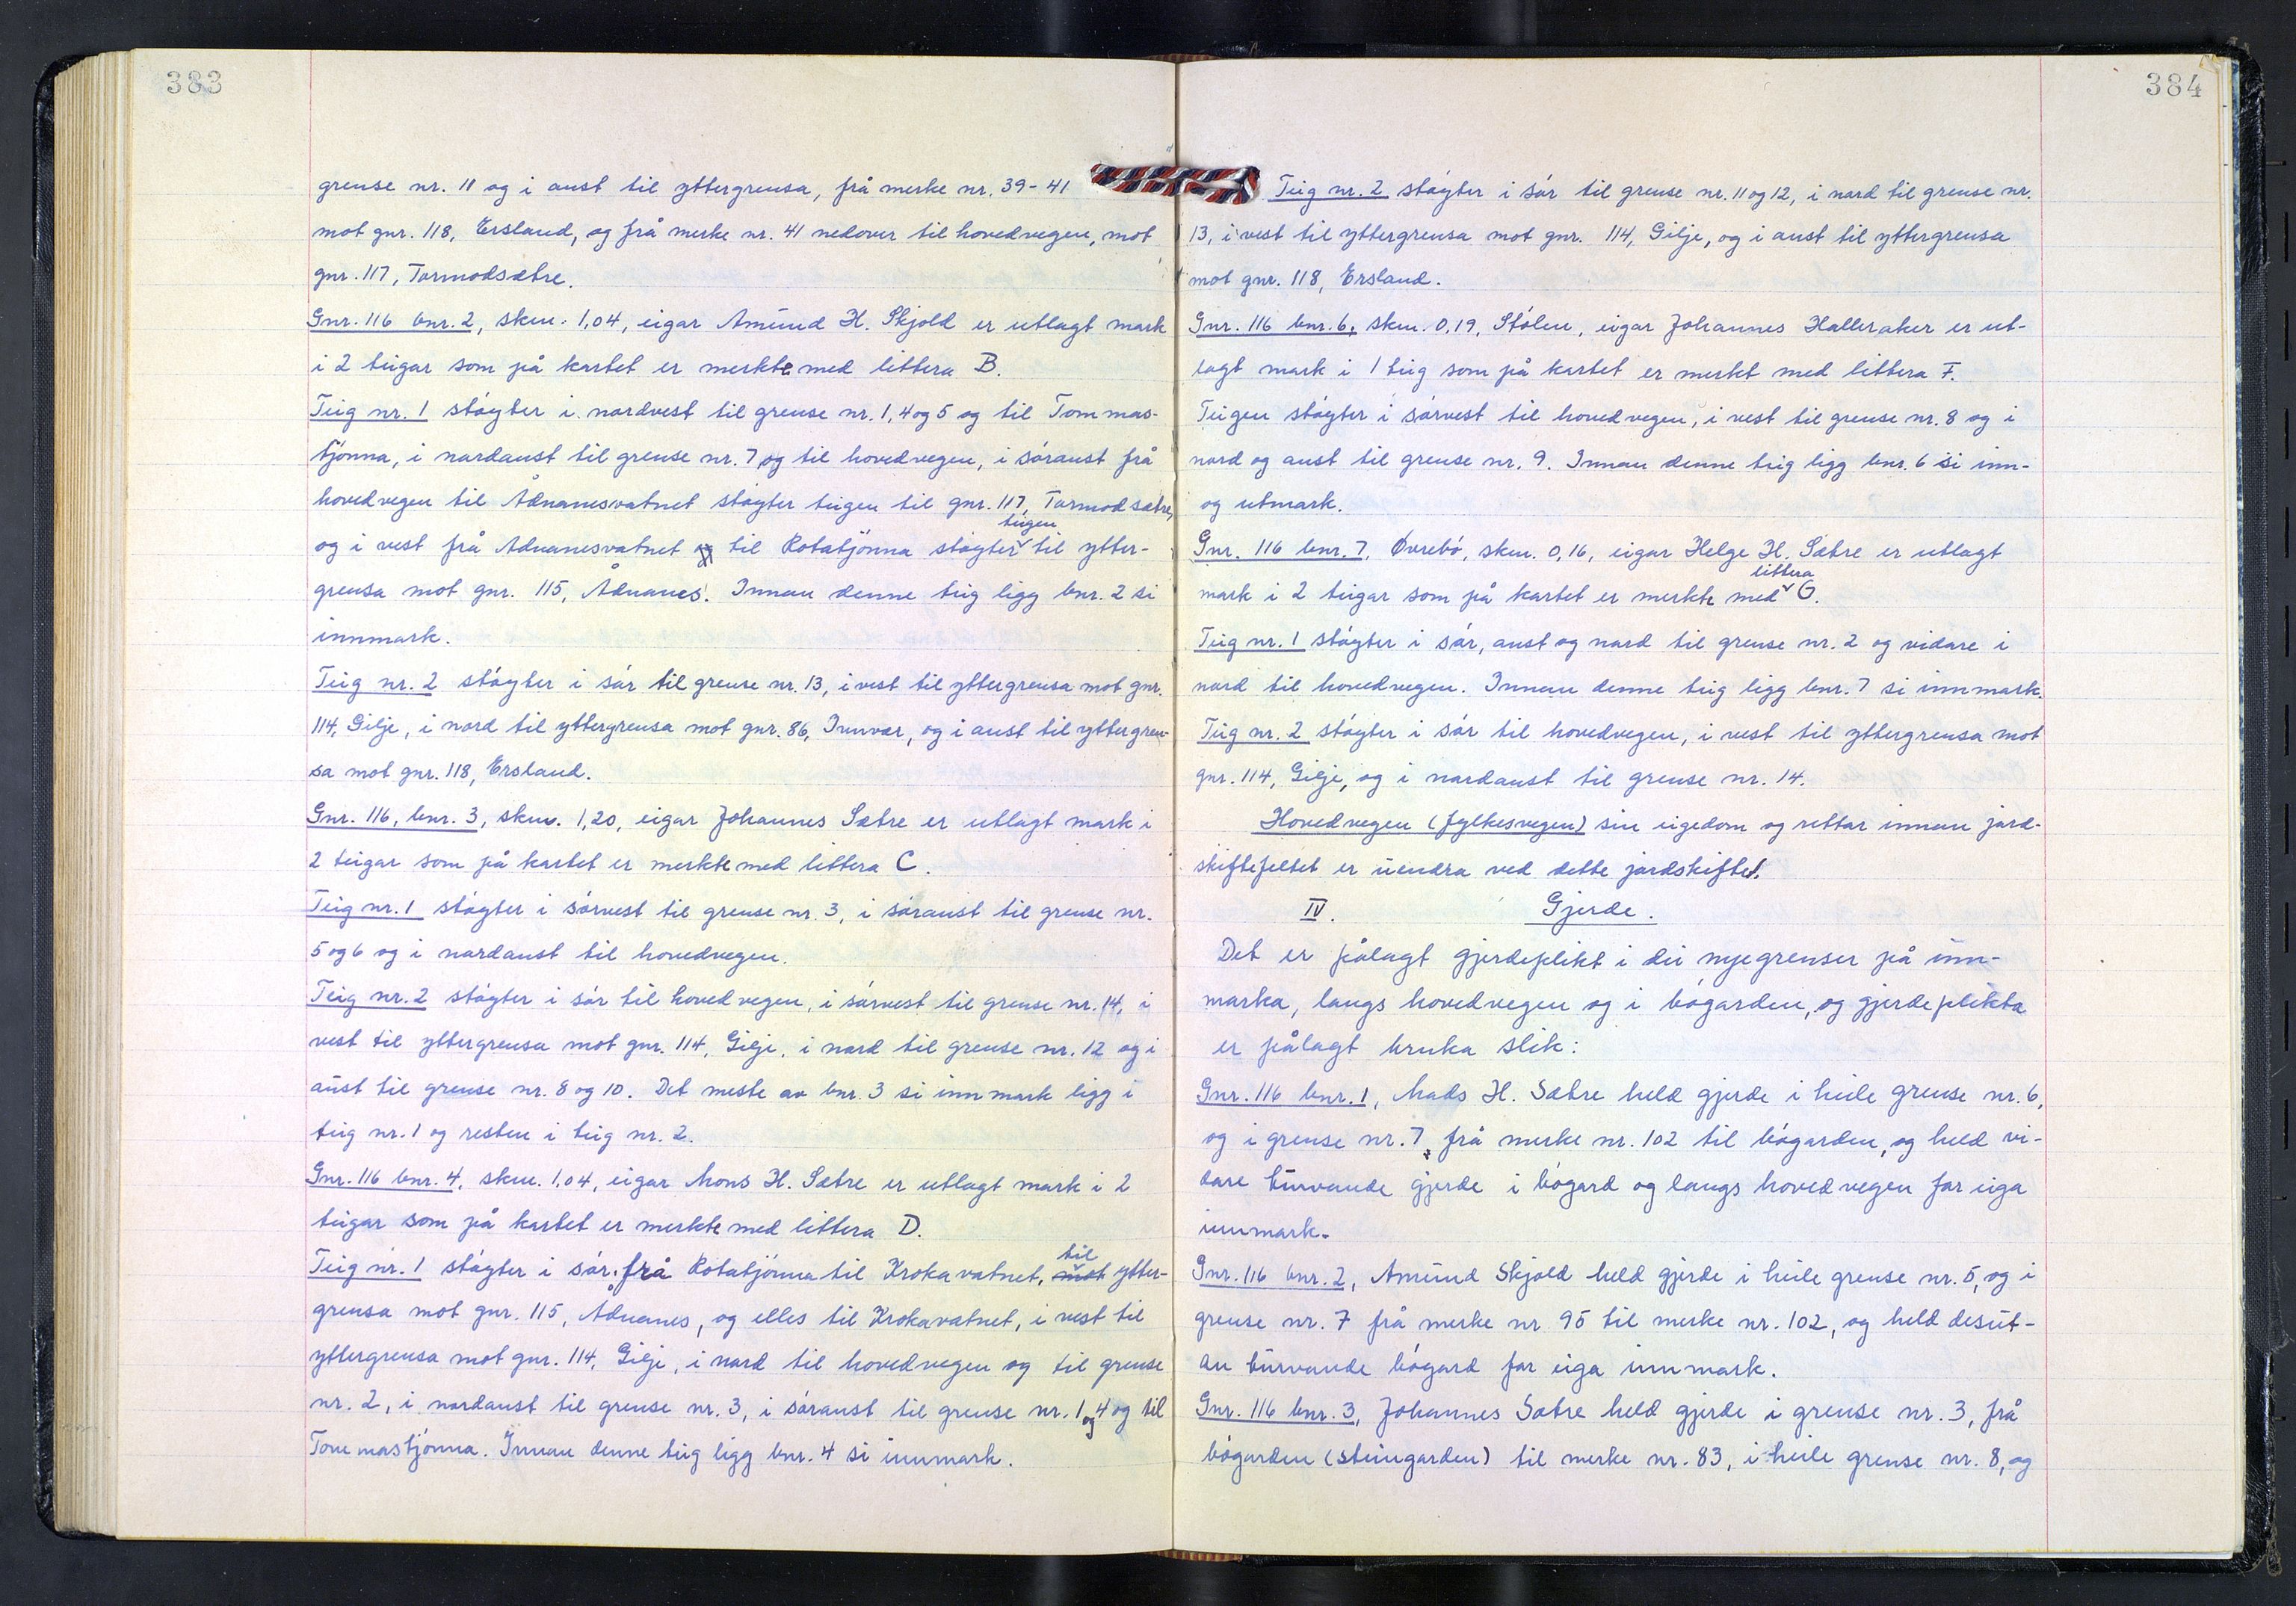 383
grense nr. 11 og i aust til yttergrensa, frå merke nr. 39-41
mot gnr. 118, Ersland, og frå merke nr. 41 nedover til hovedvegen, mot
gnr. 117, Tormodsæbre.
Gnr. 116 bnr. 2, skm. 1,04, eigar Amund H. Skjold er utlagt mark
i 2 teigar som på kartet er merkte med littera B.
Teig nr. 1 støyter i nordvest til grense nr. 1, 4 og 5 og til Tommas-
tjønna, i nordaust til grense nr. 7 og til hovedvegen, i søraust frå
hovedvegen til Ådnanesvatnet støyter teigen til gnr. 117, Tormodsæbre,
og i vest frå Ådnanesvatnet til Kotatjønna støyter teigen til ytter-
grensa mot gnr. 115, Ådnanes. Innan denne teig ligg bnr. 2 si
innmark.
Teig nr. 2 støyter i sør til grense nr. 13, i vest til yttergrensa mot gnr.
114, Gilje, i nord til yttergrensa mot gnr. 86, Innvær, og i aust til yttergren-
sa mot gnr. 118, Ersland.
Gnr. 116, bnr. 3, skm. 1,20, eigar Johannes Sæbre er utlagt mark i
2 teigar som på kartet er merkte med littera C.
Teig nr. 1 støyter i sørvest til grense nr. 3, i søraust til grense nr.
5 og 6 og i nordaust til hovedvegen.
Teig nr. 2 støyter i sør til hovedvegen, i sørvest til grense nr. 14, i
vest til yttergrensa mot gnr. 114, Gilje, i nord til grense nr. 12 og i
aust til grense nr. 8 og 10. Det meste av bnr. 3 si innmark ligg i
teig nr. 1 og resten i teig nr. 2.
Gnr. 116 bnr. 4, skm. 1,04, eigar Mons H. Sæbre er utlagt mark i 2
teigar som på kartet er merkte med littera D.
Teig nr. 1 støyter i sør, frå Kotatjønna til Krokavatnet, mot til ytter-
grensa mot gnr. 115, Ådnanes, og elles til Krokavatnet, i vest til
yttergrensa mot gnr. 114, Gilje, i nord til hovedvegen og til grense
nr. 2, i nordaust til grense nr. 3, i søraust til grense nr. 1 og 4 og til
Tommastjønna. Innan denne teig ligg bnr. 4 si innmark.
384
Teig nr. 2 støyter i sør til grense nr. 11 og 12, i nord til grense nr.
13, i vest til yttergrensa mot gnr. 114, Gilje, og i aust til yttergrensa
mot gnr. 118, Ersland.
Gnr. 116 bnr. 6, skm. 0,19, Stølen, eigar Johannes Halleraker er ut-
lagt mark i 1 teig som på kartet er merkt med littera F.
Teigen støyter i sørvest til hovedvegen, i vest til grense nr. 8 og i
nord og aust til grense nr. 9. Innan denne teig ligg bnr. 6 si inn-
og utmark.
Gnr. 116 bnr. 7, Øvrebø, skm. 0,16, eigar Helge H. Sæbre er utlagt
mark i 2 teigar som på kartet er merkte med littera G.
Teig nr. 1 støyter i sør, aust og nord til grense nr. 2 og vidare i
nord til hovedvegen. Innan denne teig ligg bnr. 7 si innmark.
Teig nr. 2 støyter i sør til hovedvegen, i vest til yttergrensa mot
gnr. 114, Gilje, og i nordaust til grense nr. 14.
Hovedvegen (fylkesvegen) sin eigedom og rettar innan jord-
skiftefeltet er uendra ved dette jordskiftet.
IV. Gjerde.
Det er pålagt gjerdeplikt i dei nye grenser på inn-
marka, langs hovedvegen og i bøgarden, og gjerdeplikta
er pålagt bruka slik:
Gnr. 116 bnr. 1, Mads H. Sæbre held gjerde i heile grense nr. 6,
og i grense nr. 7, frå merke nr. 102 til bøgarden, og held vi-
dare turvande gjerde i bøgard og langs hovedvegen for eiga
innmark.
Gnr. 116 bnr. 2, Amund Skjold held gjerde i heile grense nr. 5, og i
grense nr. 7 frå merke nr 95 til merke nr. 102, og held desut-
an turvande bøgard for eiga innmark.
Gnr. 116 bnr. 3, Johannes Sæbre held gjerde i grense nr. 3, frå
bøgarden (steingarden) til merke nr. 83, i heile grense nr. 8, og